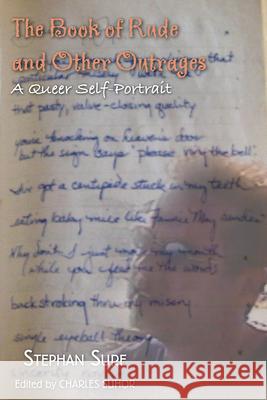 The Book of Rude
and Other Outrages
A Queer Self-Portrait
that pasty, valve-closing quality
you're knocking on heaven's door
but the sign says "please ring the bell".
I've got a centipede stuck in my teeth
eating baby mice like
Why don't I just my mouth
(while you feed me the words
backstroking through my misery
single eyeball theory
STEPHAN SURE
Edited by CHARLES SUHOR